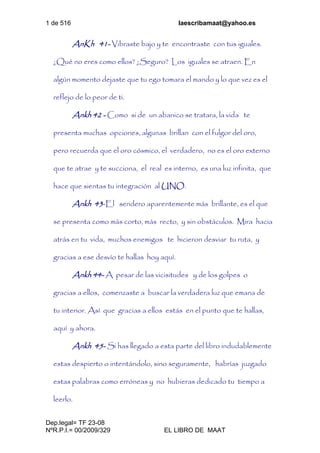 1 de 516 laescribamaat@yahoo.es
AnKh 41- Vibraste bajo y te encontraste con tus iguales.
¿Qué no eres como ellos? ¿Seguro? Los iguales se atraen. En
algún momento dejaste que tu ego tomara el mando y lo que vez es el
reflejo de lo peor de ti.
Ankh 42 - Como si de un abanico se tratara, la vida te
presenta muchas opciones, algunas brillan con el fulgor del oro,
pero recuerda que el oro cósmico, el verdadero, no es el oro externo
que te atrae y te succiona, el real es interno, es una luz infinita, que
hace que sientas tu integración al UNO.
Ankh 43- El sendero aparentemente más brillante, es el que
se presenta como más corto, más recto, y sin obstáculos. Mira hacia
atrás en tu vida, muchos enemigos te hicieron desviar tu ruta, y
gracias a ese desvío te hallas hoy aquí.
Ankh 44- A pesar de las vicisitudes y de los golpes o
gracias a ellos, comenzaste a buscar la verdadera luz que emana de
tu interior. Así que gracias a ellos estás en el punto que te hallas,
aquí y ahora.
Ankh 45- Si has llegado a esta parte del libro indudablemente
estas despierto o intentándolo, sino seguramente, habrías juzgado
estas palabras como erróneas y no hubieras dedicado tu tiempo a
leerlo.
Dep.legal= TF 23-08
NºR.P.I.= 00/2009/329 EL LIBRO DE MAAT